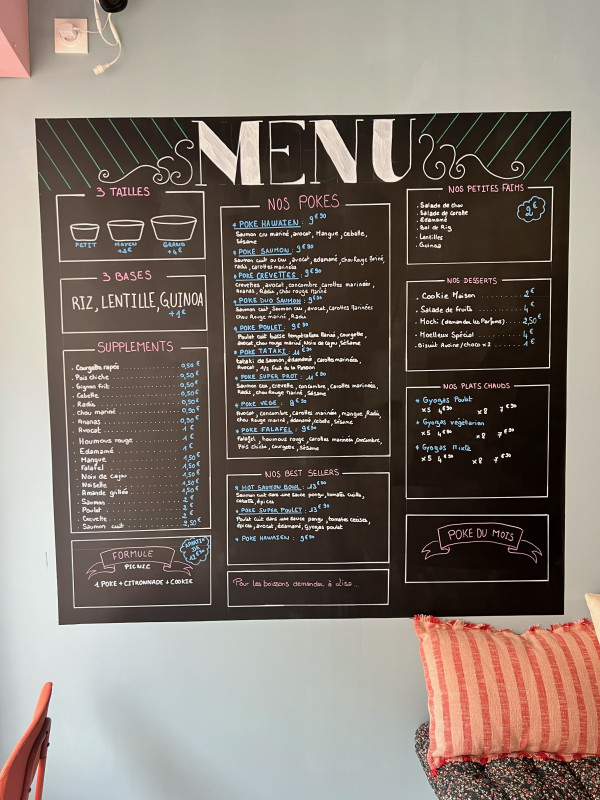 MENU
3 TAILLES
PETIT
MOYEN
+2€
GRAND
+4€
3 BASES
RIZ, LENTILLE, QUINOA
+1€
SUPPLEMENTS
. Courgette rapée 0,50€
. Pois chiche 0,50€
. Oignon frit 0,50€
. Cebette 0,50€
. Radis 0,50€
. Chou mariné 0,50€
. Ananas 0,50€
. Avocat 1€
. Houmous rouge 1€
. Edamamé 1€
. Mangue 1,50€
. Falafel 1,50€
. Noix de cajou 1,50€
. Noisette 1,50€
. Amande grillée 1,50€
. Saumon 2€
. Poulet 2€
. Crevette 2€
. Saumon cuit 2,50€
FORMULE
PICNIC
1 POKE + CITRONNADE + COOKIE
NOS POKES
* POKE HAWAIEN : 9€90
Saumon cru mariné, avocat, Mangue, cebette,
Sésame
* POKE SAUMON : 9€90
Saumon cuit ou cru, avocat, edamamé, chou Rouge Mariné,
radis, carottes marinées
* POKE CREVETTES : 9€90
Crevettes, avocat, concombre, carottes marinées,
Ananas, Radis, chou rouge Mariné
* POKE DUO SAUMON : 9€90
Saumon cuit, Saumon cru, avocat, carottes Marinées
Chou Rouge mariné, Radis
* POKE POULET : 9€90
Poulet cuit basse température Mariné, courgette,
avocat, chou rouge mariné, Noix de cajou, Sésame
* POKE TATAKI : 11€90
tataki de Saumon, édamamé, carottes marinées,
Avocat, 1/2 Fruit de la Passion
* POKE SUPER PROT : 11€90
Saumon cru, crevette, concombre, carottes marinées,
Radis, chou rouge Mariné, Sésame
* POKE VEGE : 9€90
Avocat, concombre, carottes marinées, mangue, Radis,
chou Rouge mariné, édamamé, cebette, Sésame
* POKE FALAFEL : 9€90
Falafel, houmous rouge, carottes marinées, concombre,
Pois chiche, courgette, Sésame
NOS BEST SELLERS
* HOT SAUMON BOWL : 13€90
Saumon cuit dans une sauce ponzu, tomates cuites,
cebette, épices
* POKE SUPER POULET : 13€90
Poulet cuit dans une sauce ponzu, tomates cerises,
épices, avocat, édamamé, Gyozas poulet
* POKE HAWAIEN : 9€90
Pour les boissons demander à Lisa...
NOS PETITES FAIMS
. Salade de chou
. Salade de carotte
. Edamamé
. Bol de Riz
. Lentilles
. Quinoa
2€
NOS DESSERTS
. Cookie Maison 2€
. Salade de fruits 4€
. Mochi (demandez les Parfums) 2,50€
. Moelleux Spécial 4€
. Biscuit Avoine/choco x2 1€
NOS PLATS CHAUDS
* Gyozas Poulet
x5 4€50 x8 7€50
* Gyozas végétarien
x5 4€50 x8 7€50
* Gyozas Mixte
x5 4€50 x8 7€50
POKE DU MOIS